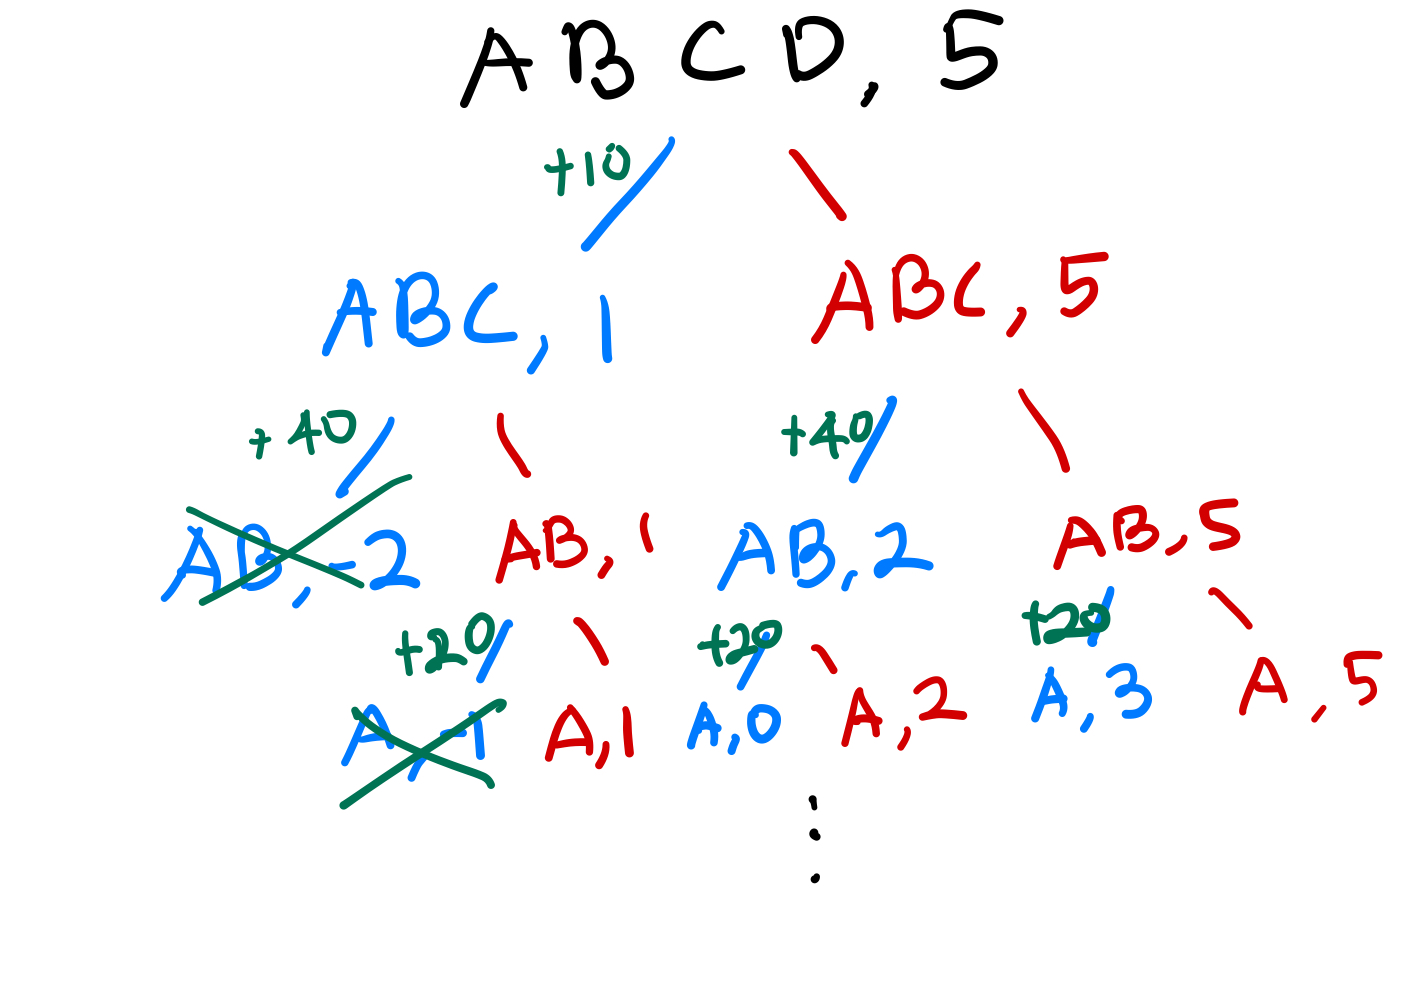 ABCD, 5
+10
ABC, 1 ABC, 5
+40 +40
AB, -2 AB, 1 AB, 2 AB, 5
+20 +20 +20
A, -1 A, 1 A, 0 A, 2 A, 3 A, 5
⋮